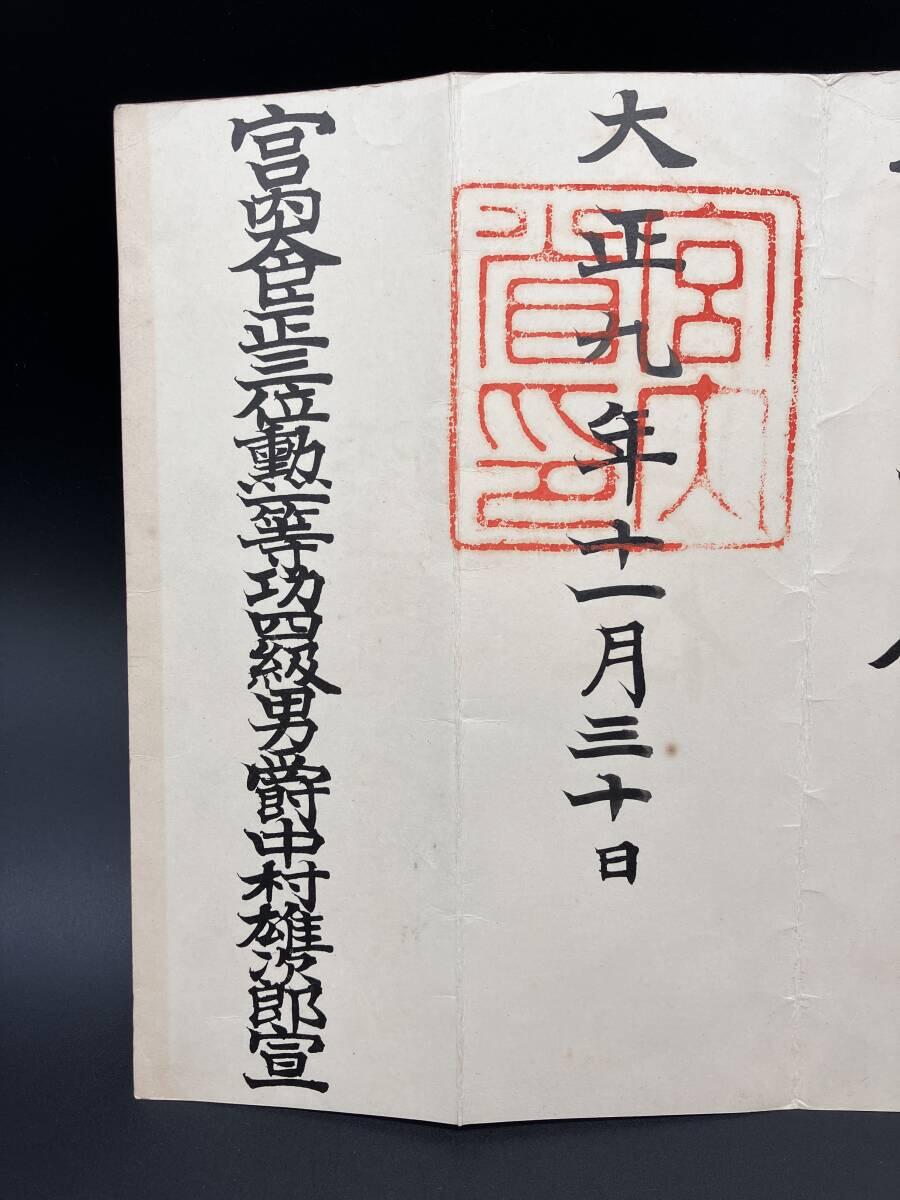 大正九年十一月三十日
宮内省印
宮内大臣正三位勲一等功四級男爵中村雄次郎宣